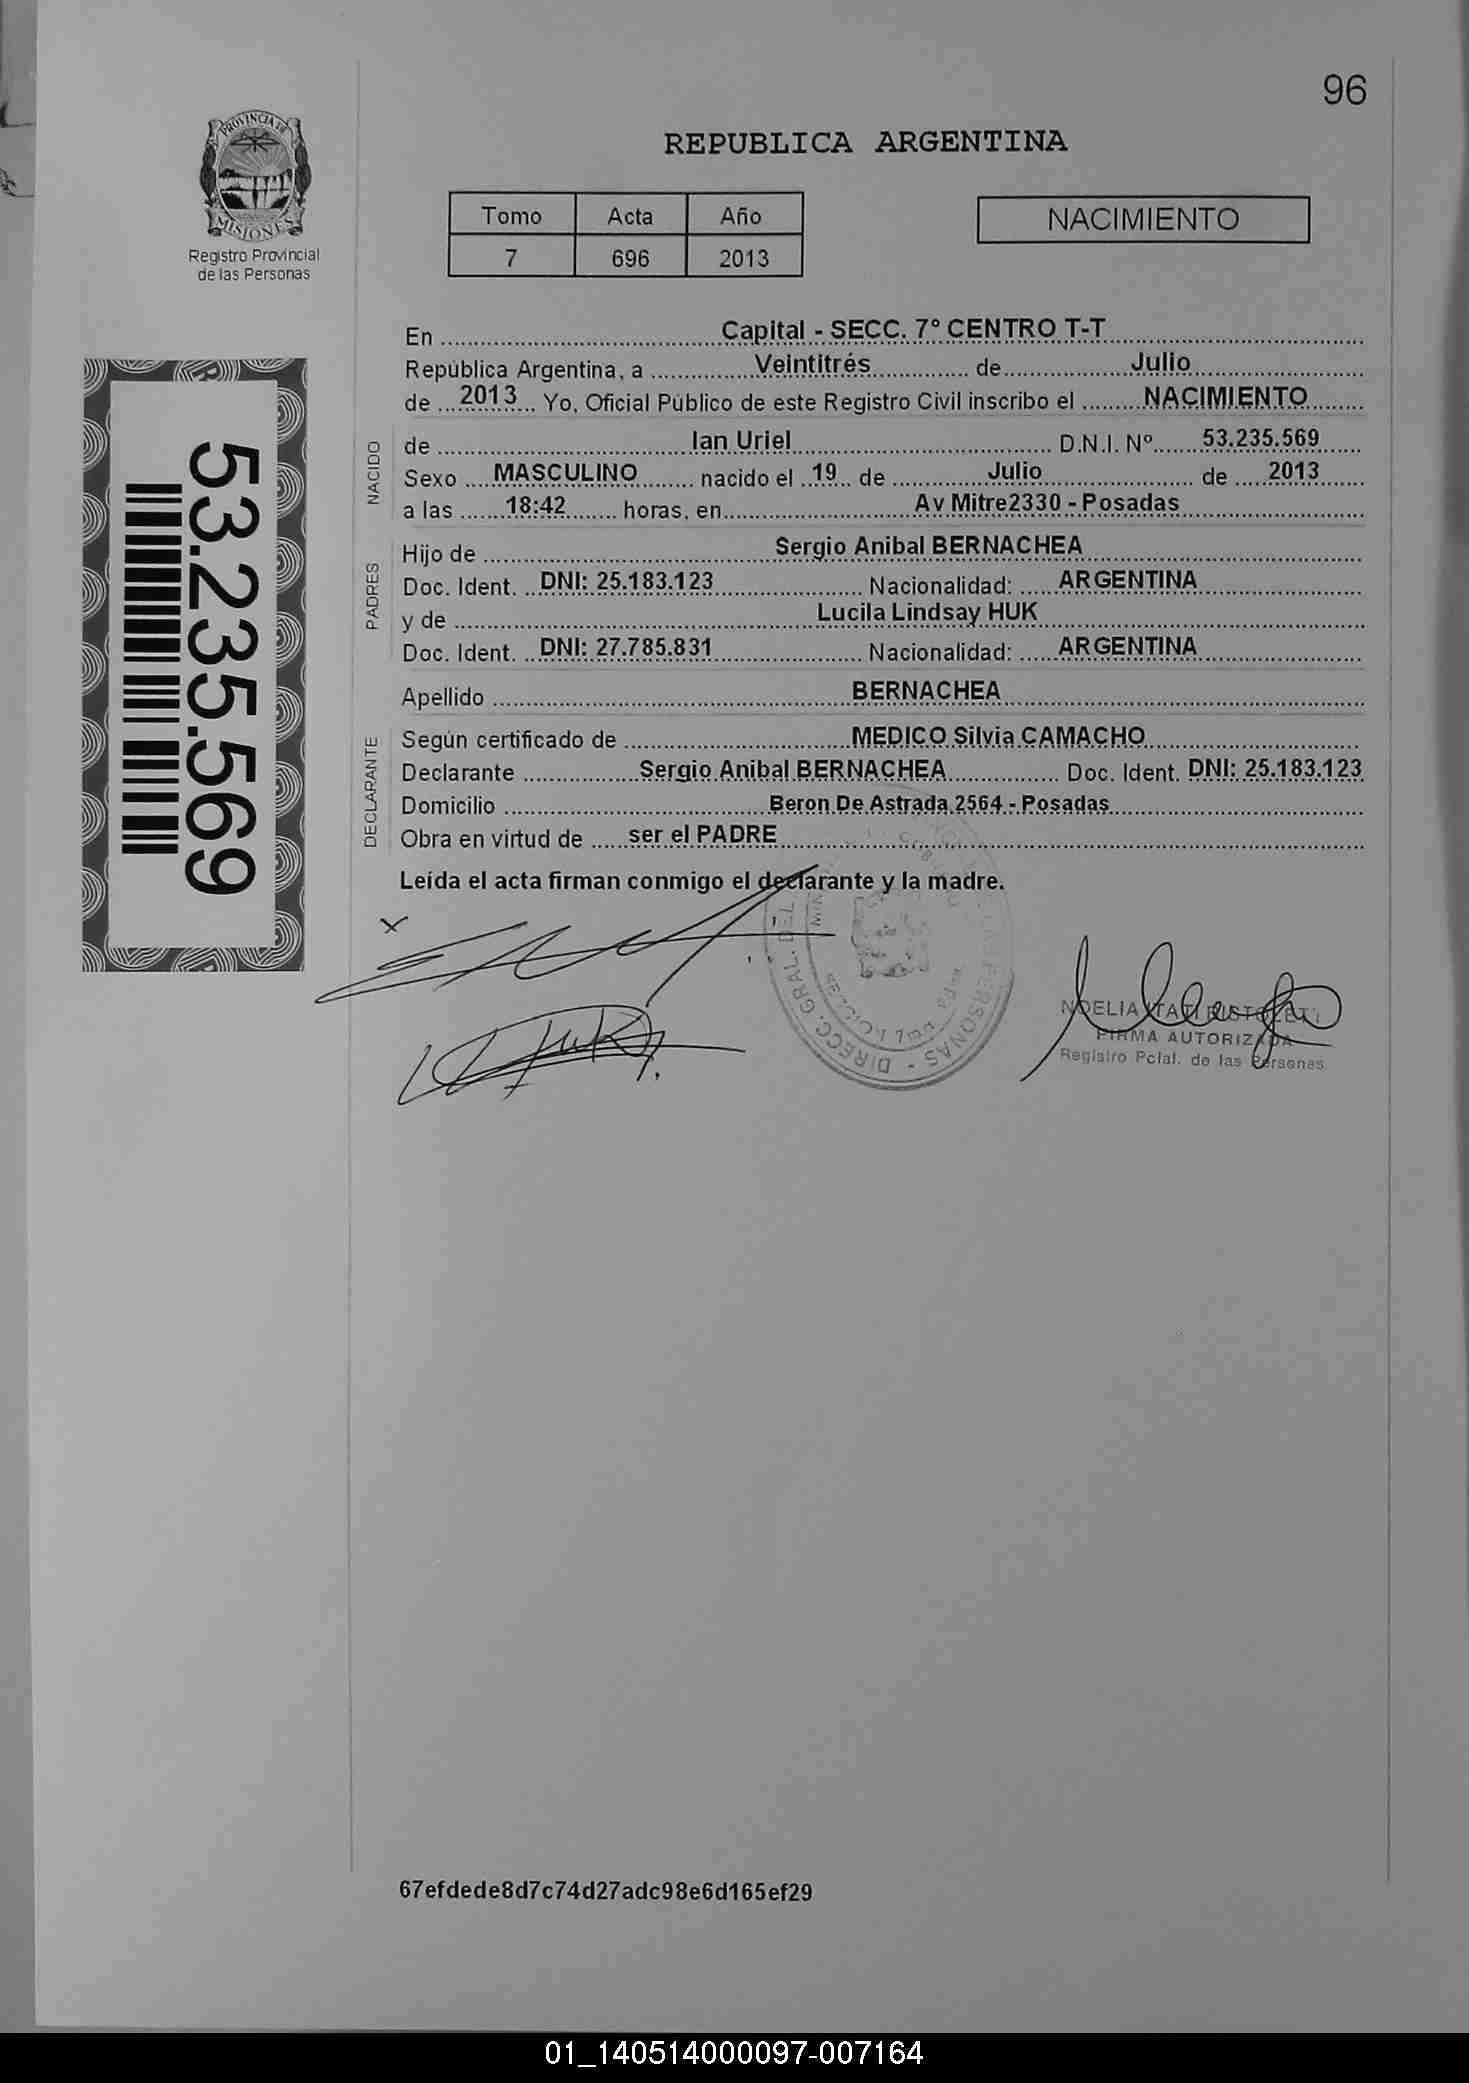 96
PROVINCIA DE
MISIONES
Registro Provincial
de las Personas
REPUBLICA ARGENTINA
Tomo Acta Año
7 696 2013
NACIMIENTO
53.235.569
En ........ Capital - SECC. 7º CENTRO T-T ........
República Argentina, a ........ Veintitrés ........ de ........ Julio ........
de .... 2013 .... Yo, Oficial Público de este Registro Civil inscribo el ........ NACIMIENTO ........
NACIDO
de ........ Ian Uriel ........ D.N.I. Nº ........ 53.235.569 ........
Sexo .... MASCULINO ........ nacido el .. 19 .. de ........ Julio ........ de .... 2013 ....
a las ........ 18:42 ........ horas, en ........ Av Mitre2330 - Posadas ........
PADRES
Hijo de ........ Sergio Anibal BERNACHEA ........
Doc. Ident. .. DNI: 25.183.123 ........ Nacionalidad: ..... ARGENTINA ........
y de ........ Lucila Lindsay HUK ........
Doc. Ident. .. DNI: 27.785.831 ........ Nacionalidad: ..... ARGENTINA ........
Apellido ........ BERNACHEA ........
DECLARANTE
Según certificado de ........ MEDICO Silvia CAMACHO ........
Declarante ........ Sergio Anibal BERNACHEA ........ Doc. Ident. DNI: 25.183.123
Domicilio ........ Beron De Astrada 2564 - Posadas ........
Obra en virtud de ..... ser el PADRE ........
Leída el acta firman conmigo el declarante y la madre.
DIRECC. GRAL. DEL
LAS PERSONAS
NOELIA ITATI
FIRMA AUTORIZADA
Registro Pcial. de las Personas
67efdede8d7c74d27adc98e6d165ef29
01_140514000097-007164